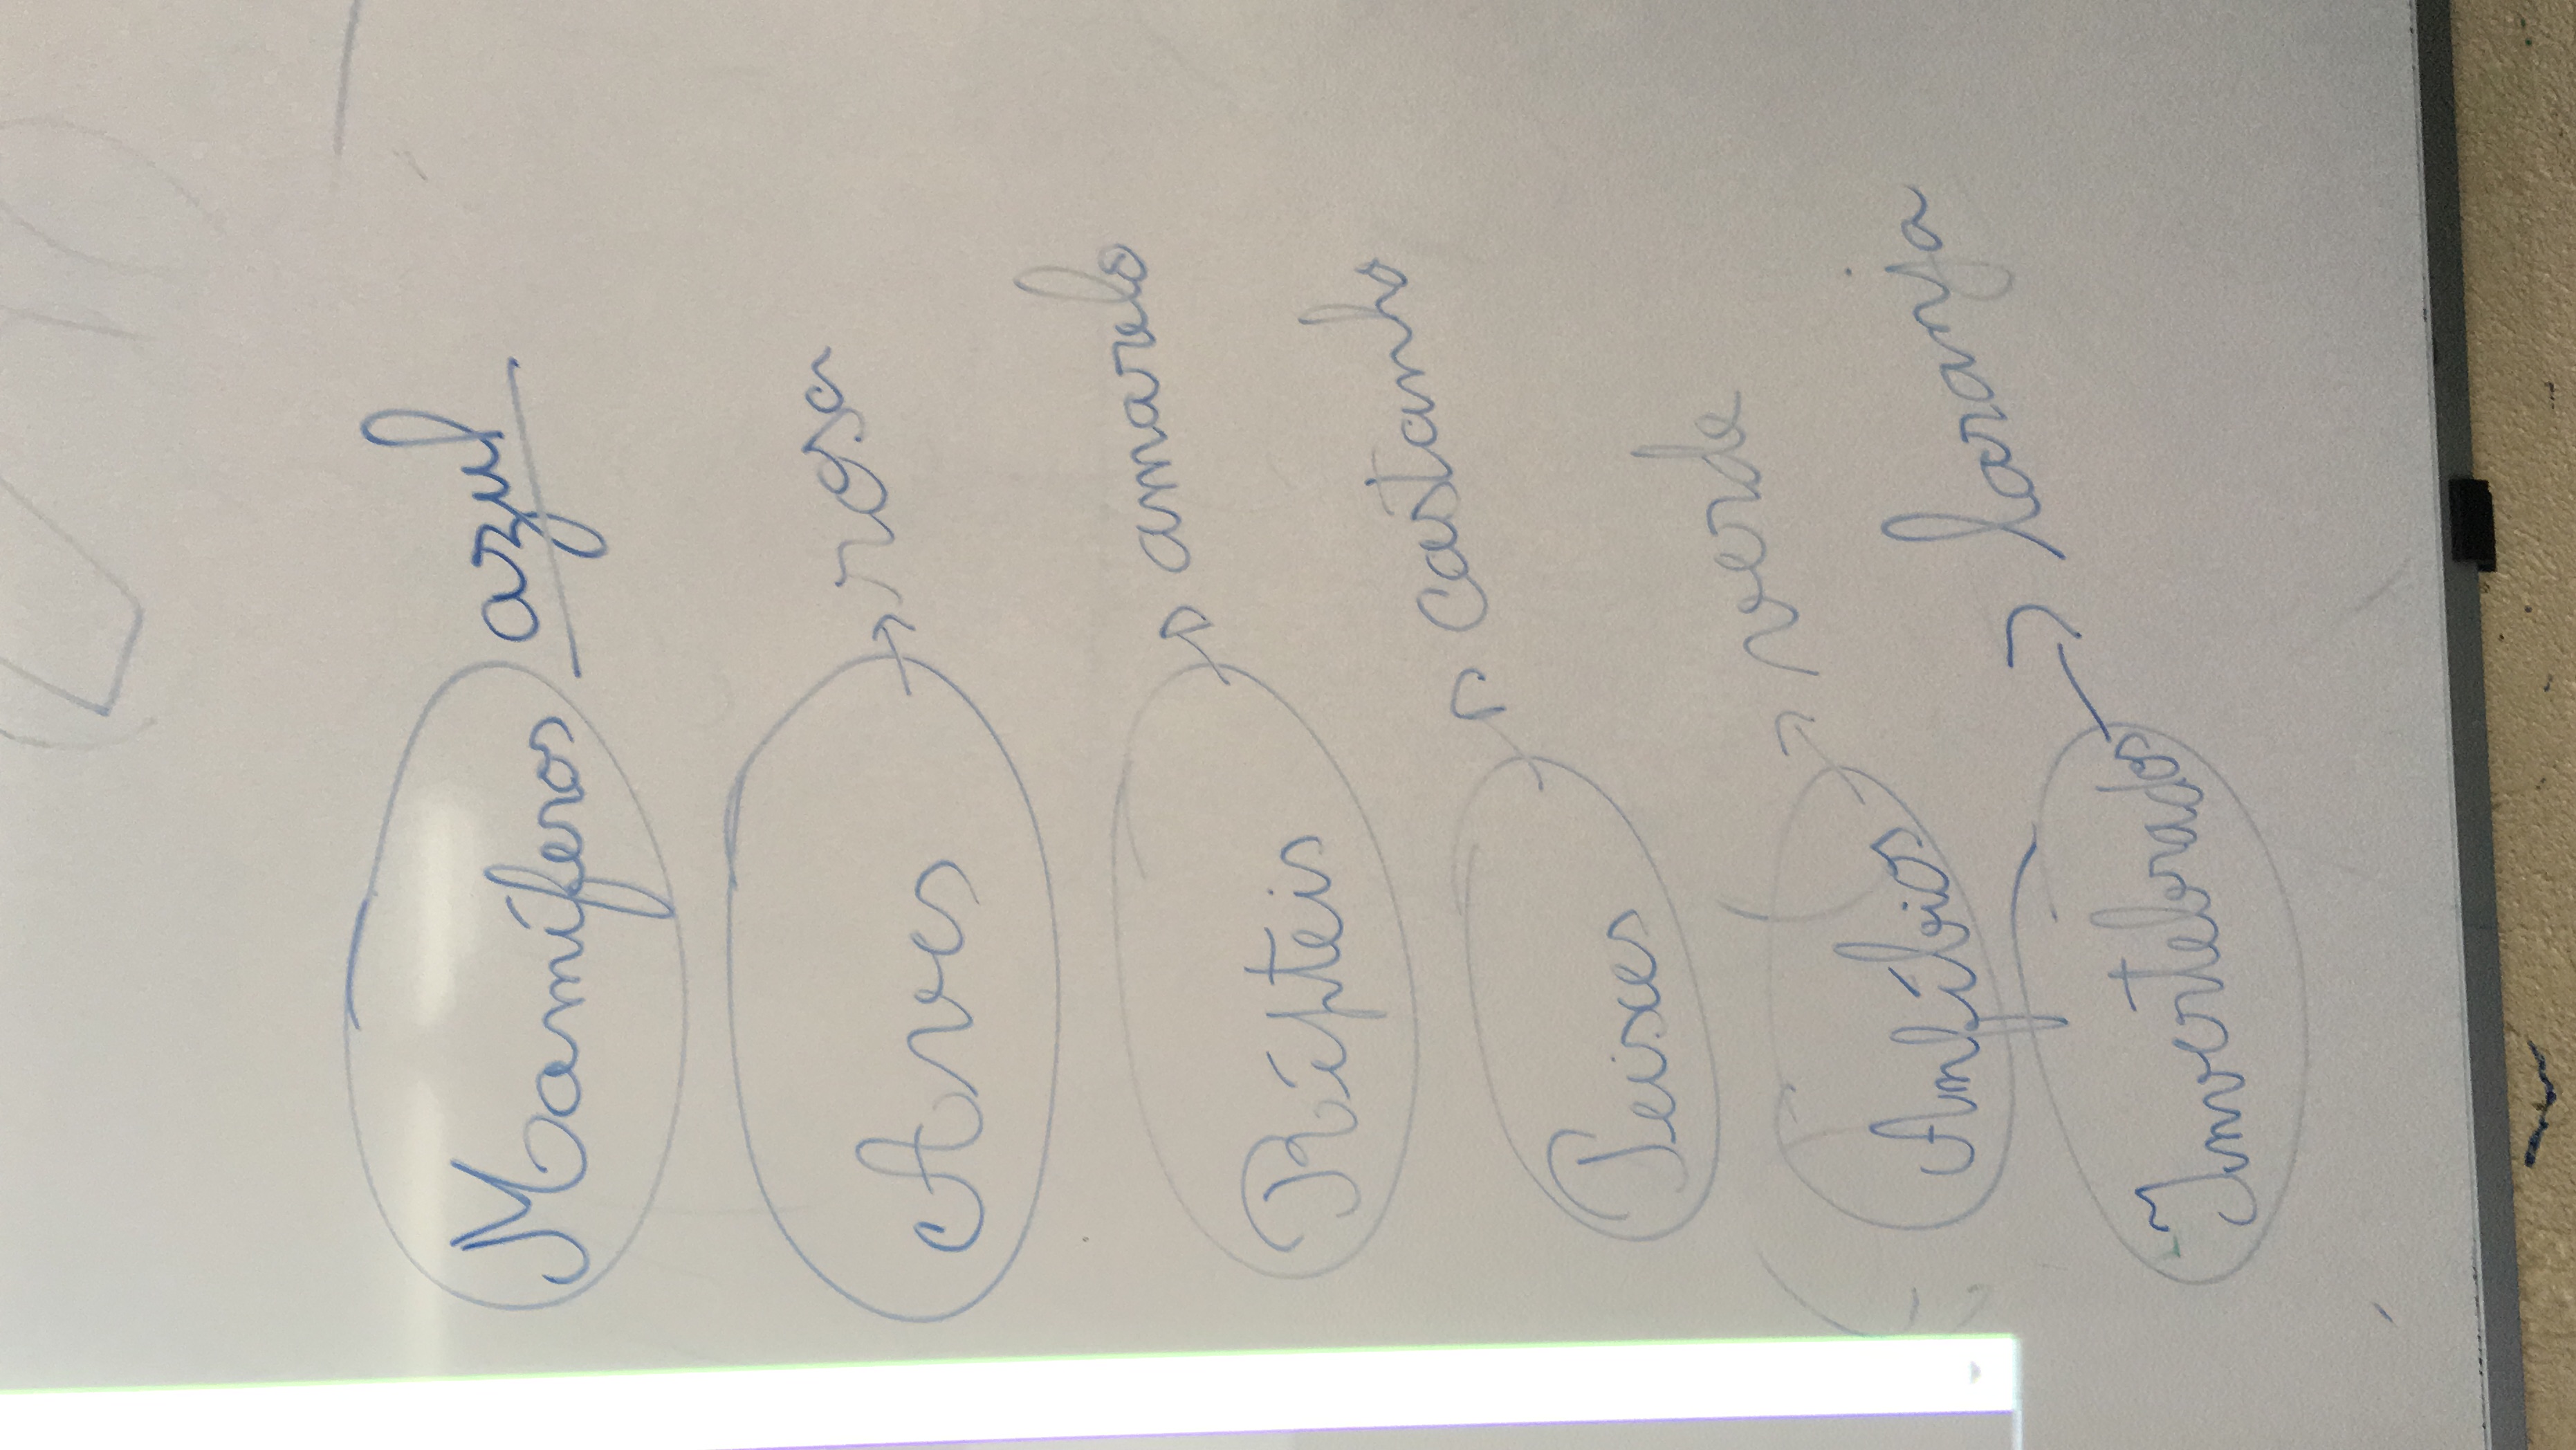 Mamíferos azul
Aves → rosa
Répteis → amarelo
Peixes → castanho
Anfíbios → verde
Invertebrados → laranja